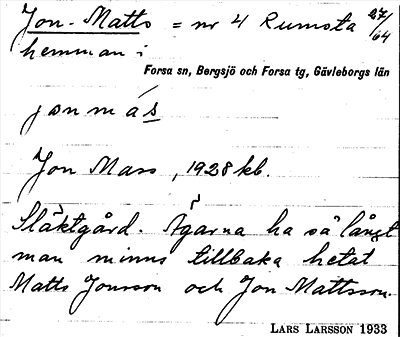 Jon-Matts = nr 4 Rumsta 27/64
hemman:
Forsa sn, Bergsjö och Forsa tg, Gävleborgs län
jonmás
Jon Mass, 1928 kb.
Släktgård. Ägarna ha så långt
man minns tillbaka hetat
Matts Jonsson och Jon Mattsson.
LARS LARSSON 1933